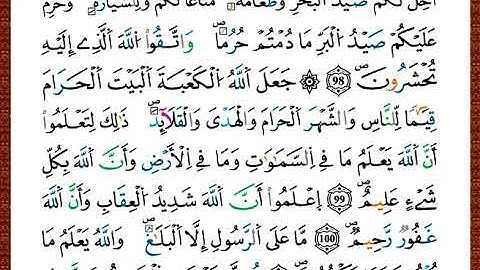 اُحِلَّ لَكُمْ صَيْدُ اُ۬لْبَحْرِ وَطَعَامُهُۥ مَتَٰعاٗ لَّكُمْ وَلِلسَّيَّارَةِۖ وَحُرِّمَ
عَلَيْكُمْ صَيْدُ اُ۬لْبَرِّ مَا دُمْتُمْ حُرُماٗۖ وَاتَّقُواْ اُ۬للَّهَ اَ۬لذِےٓ إِلَيْهِ
تُحْشَرُونَۖ 98 ۞ جَعَلَ اَ۬للَّهُ اُ۬لْكَعْبَةَ اَ۬لْبَيْتَ اَ۬لْحَرَامَ
قِيَٰماٗ لِّلنَّاسِ وَالشَّهْرَ اَ۬لْحَرَامَ وَالْهَدْيَ وَالْقَلَٰٓئِدَۖ ذَٰلِكَ لِتَعْلَمُوٓاْ
أَنَّ اَ۬للَّهَ يَعْلَمُ مَا فِے اِ۬لسَّمَٰوَٰتِ وَمَا فِے اِ۬لْأَرْضِ وَأَنَّ اَ۬للَّهَ بِكُلِّ
شَےْءٍ عَلِيمٌۖ 99 اِ۪عْلَمُوٓاْ أَنَّ اَ۬للَّهَ شَدِيدُ اُ۬لْعِقَابِ وَأَنَّ اَ۬للَّهَ
غَفُورٞ رَّحِيمٞۖ 100 مَّا عَلَى اَ۬لرَّسُولِ إِلَّا اَ۬لْبَلَٰغُۖ وَاللَّهُ يَعْلَمُ مَا